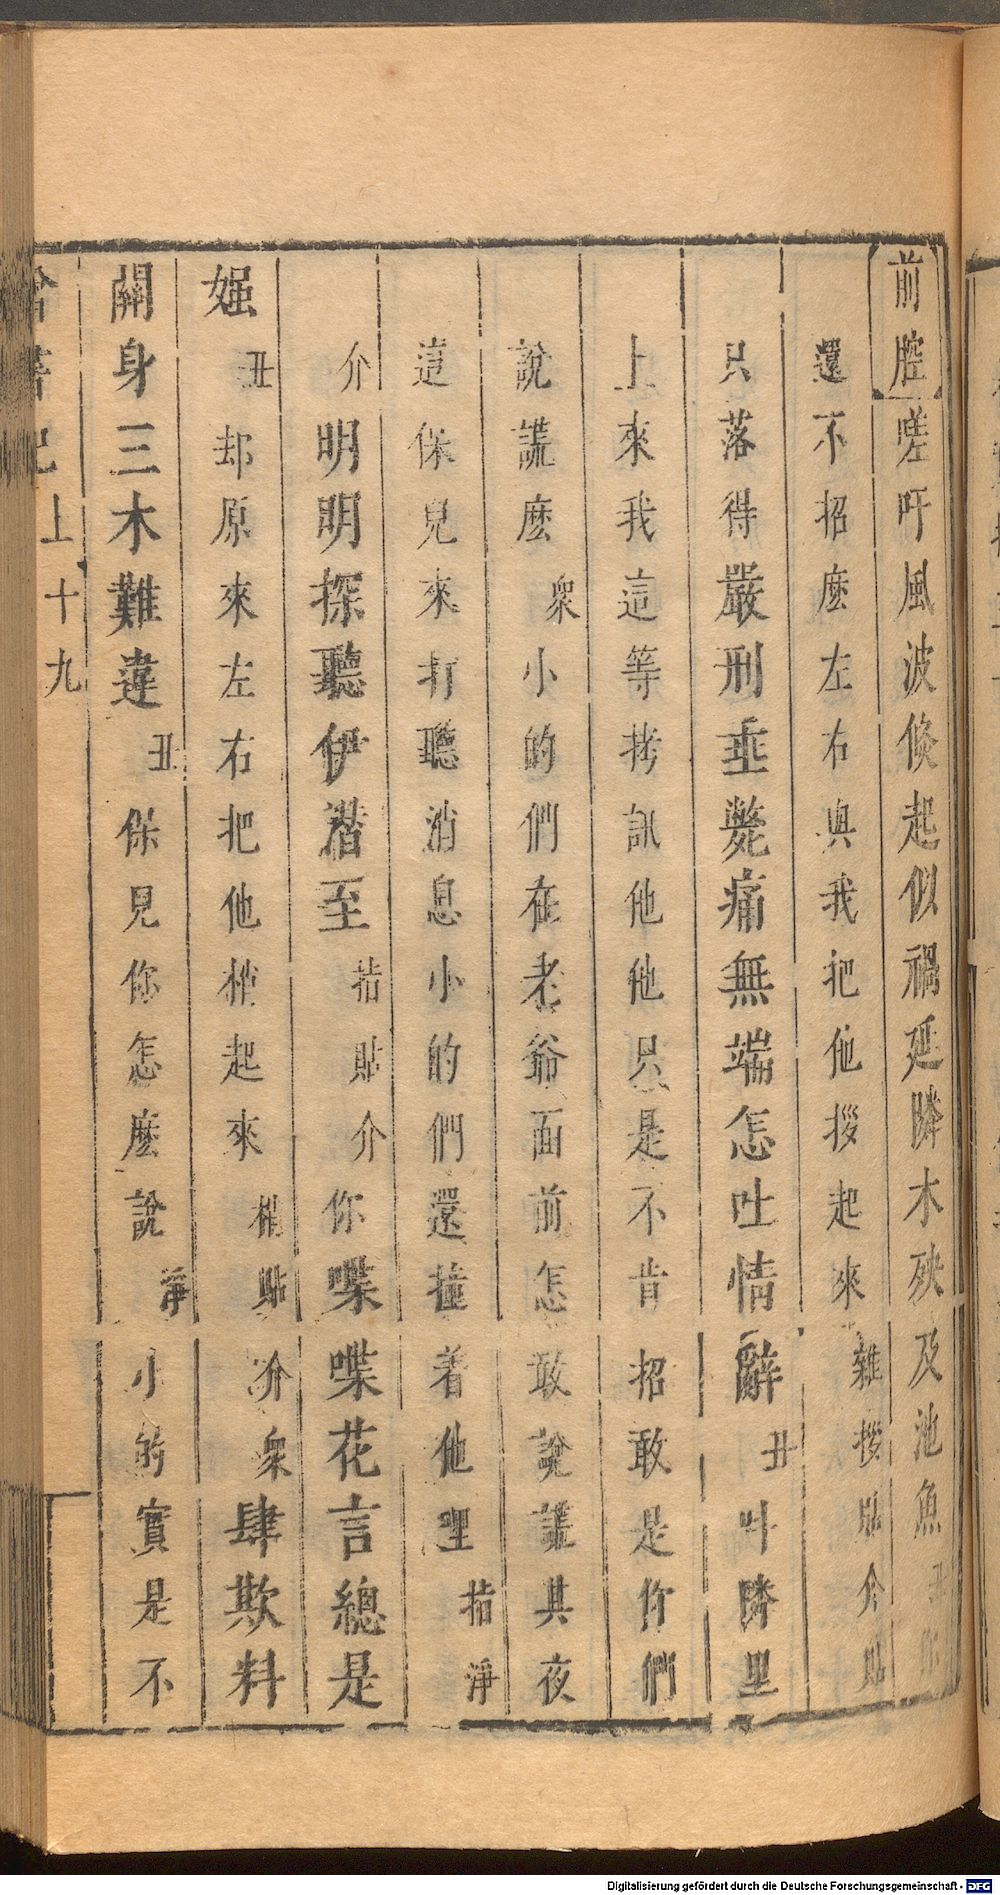 前腔嗟吁風波倐起似禍延隣木殃及池魚丑你
還不招麽左右與我把他拶起來雜拶貼介貼
只落得嚴刑垂斃痛無端怎吐情辭丑叶隣里
上來我這等拷訊他他只是不肯招敢是你們
說謊麽衆小的們在老爺面前怎敢說謊其夜
這保兒來打聽消息小的們還撞着他哩指淨
介明明探聽伊潛至指貼介你喋喋花言總是
嫗丑却原來左右把他梢起來梢貼介衆肆欺料
關身三木難違丑保兒你怎麽說淨小的實是不
上 十九
Digitalisierung gefördert durch die Deutsche Forschungsgemeinschaft - DFG